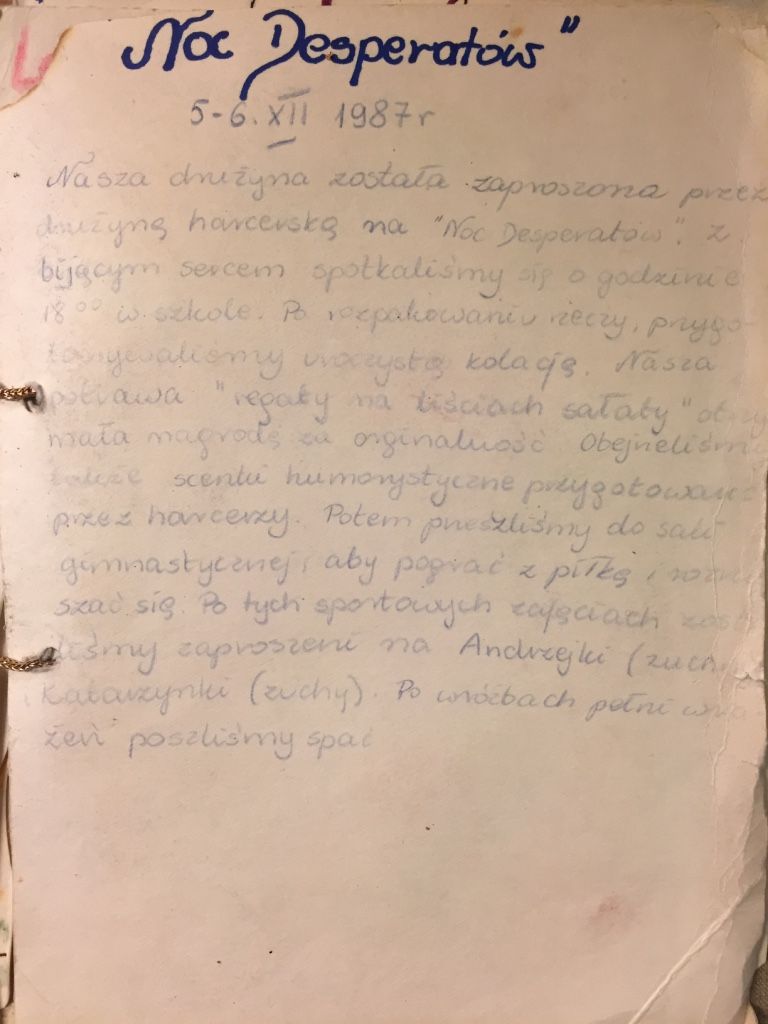 "Noc Desperatów"
5-6. XII 1987r
Nasza drużyna została zaproszona przez
drużynę harcerską na "Noc Desperatów". Z
bijącym sercem spotkaliśmy się o godzinie
18°° w szkole. Po rozpakowaniu rzeczy, przygo-
towywaliśmy uroczystą kolację. Nasza
potrawa "regaty na liściach sałaty" otrzy
mała nagrodę za orginalność Obejrzeliśmy
także scenki humorystyczne przygotowane
przez harcerzy. Potem przeszliśmy do sali
gimnastycznej, aby pograć z piłką i
szać się. Po tych sportowych zajęciach zosta
liśmy zaproszeni na Andrzejki (zuchy
Katarzynki (zuchy). Po wróżbach pełni wra
żeń poszliśmy spać